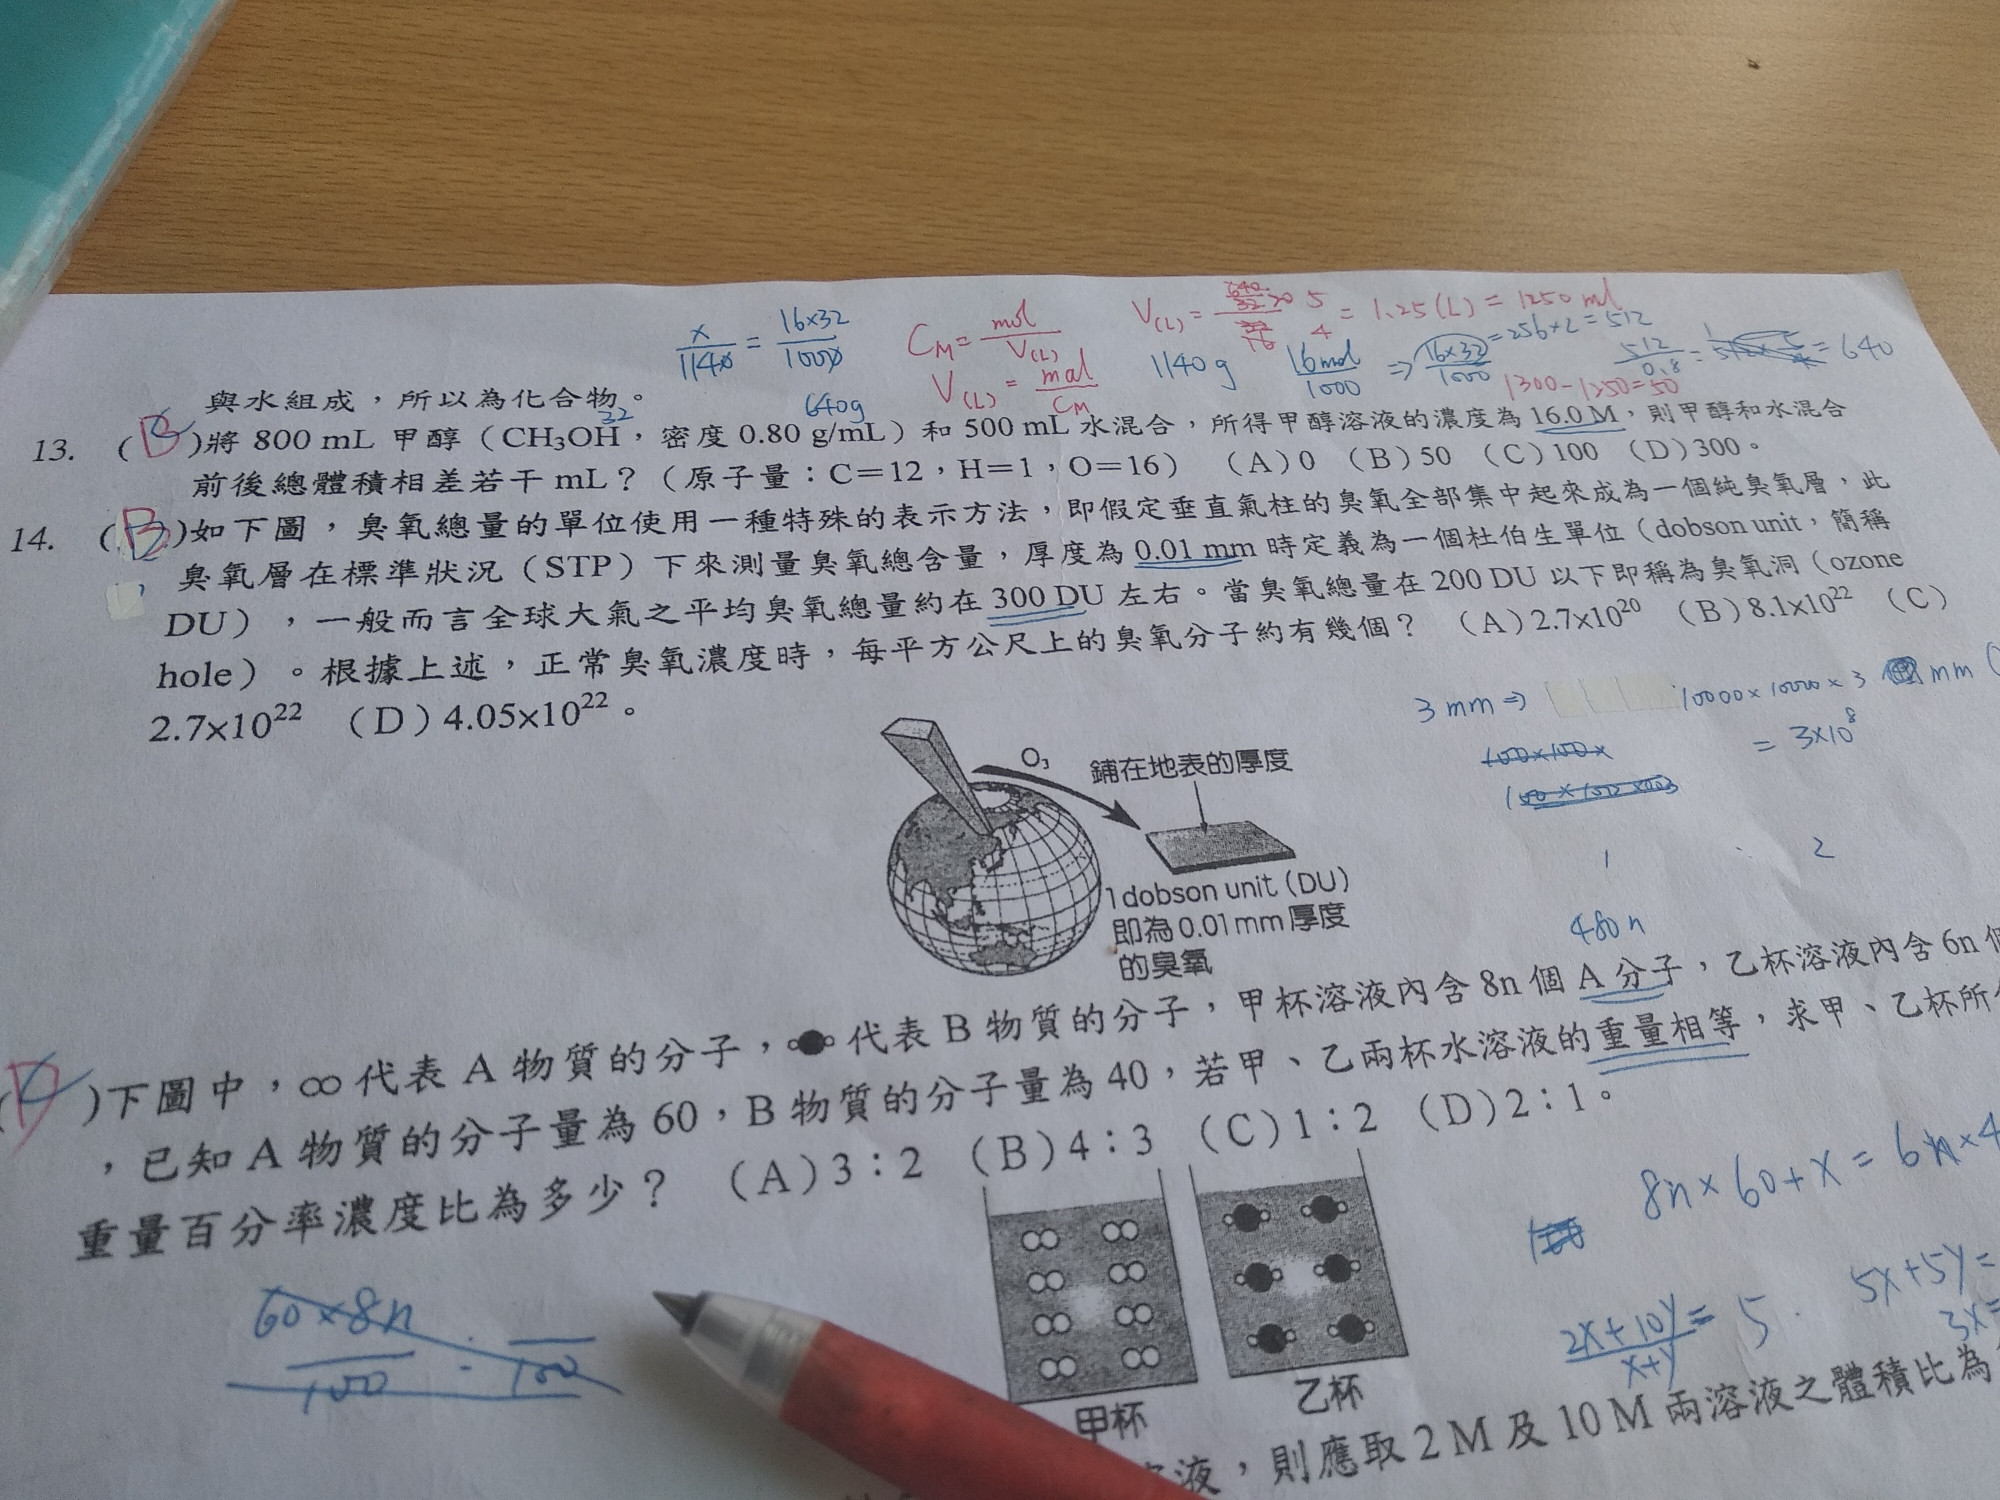 x/1140 = 16×32/1000
C_M = mol/V(L)
V(L) = mol/C_M
V(L) = 640/32 20 5 / 16 4 = 1.25 (L) = 1250 ml
1140 g 16mol/1000 ⇒ 16×32/1000 = 256×2 = 512
512/0.8 = 640
1300-1250=50
32
640g
與水組成,所以為化合物。
13. (B)將 800 mL 甲醇(CH₃OH,密度 0.80 g/mL)和 500 mL 水混合,所得甲醇溶液的濃度為 16.0 M,則甲醇和水混合
前後總體積相差若干 mL?(原子量:C=12,H=1,O=16) (A)0 (B)50 (C)100 (D)300。
14. (B)如下圖,臭氧總量的單位使用一種特殊的表示方法,即假定垂直氣柱的臭氧全部集中起來成為一個純臭氧層,此
臭氧層在標準狀況(STP)下來測量臭氧總含量,厚度為 0.01 mm 時定義為一個杜伯生單位(dobson unit,簡稱
DU),一般而言全球大氣之平均臭氧總量約在 300 DU 左右。當臭氧總量在 200 DU 以下即稱為臭氧洞(ozone
hole)。根據上述,正常臭氧濃度時,每平方公尺上的臭氧分子約有幾個? (A)2.7x10²⁰ (B)8.1x10²² (C)
2.7x10²² (D)4.05x10²²。
3 mm ⇒ 10000×10000×3 mm
= 3×10⁸
O₃
鋪在地表的厚度
1 dobson unit (DU)
即為 0.01 mm 厚度
的臭氧
1 2
480n
(D)下圖中,代表 A 物質的分子,代表 B 物質的分子,甲杯溶液內含 8n 個 A 分子,乙杯溶液內含 6n
,已知 A 物質的分子量為 60,B 物質的分子量為 40,若甲、乙兩杯水溶液的重量相等,求甲、乙杯所
重量百分率濃度比為多少? (A)3:2 (B)4:3 (C)1:2 (D)2:1。
8n×60+x = 6n×4
60×8n/100 : /100
2x+10y/x+y = 5
5x+5y=
3x=
甲杯
乙杯
溶液,則應取 2 M 及 10 M 兩溶液之體積比為